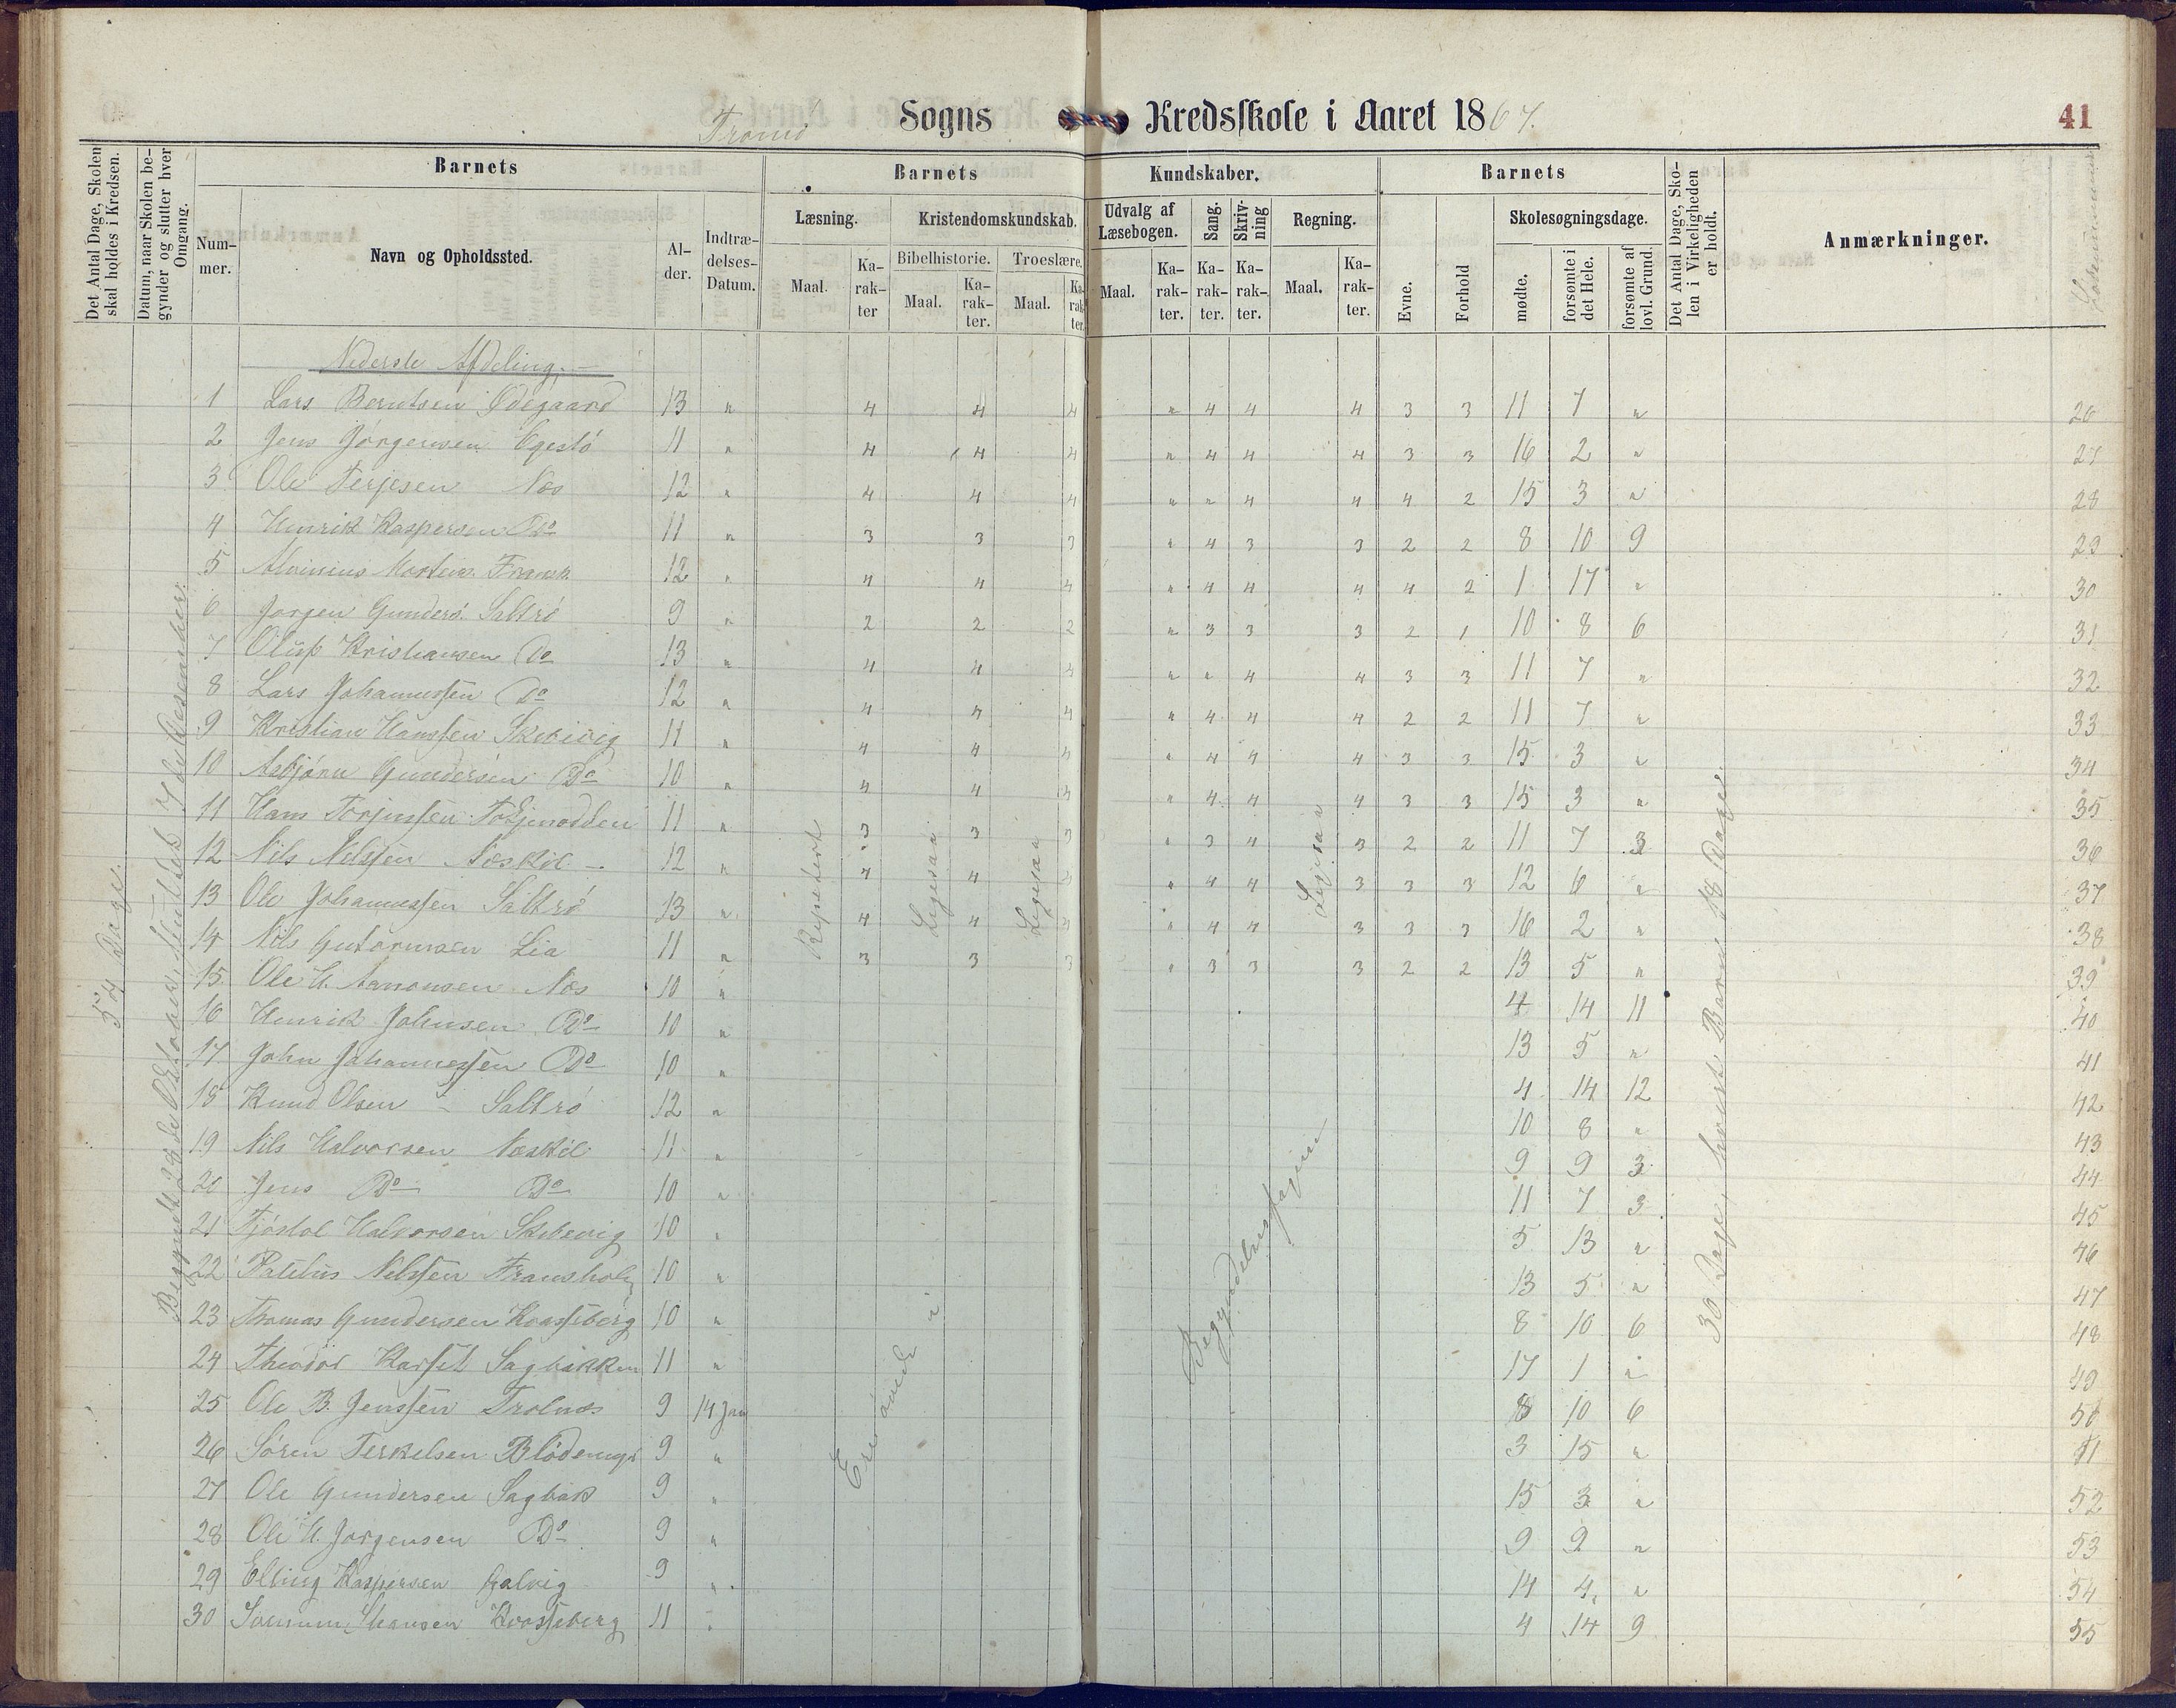 Tromö Sogns Kredsskole i Aaret 1867. 41
Det Antal Dage, Skolen skal holdes i Kredsen.
Datum, naar Skolen begynder og slutter hver Omgang.
Barnets
Num-mer.
Navn og Opholdssted.
Al-der.
Indtræ-delses-Datum.
Barnets Kundskaber.
Læsning.
Maal.
Ka-rak-ter
Kristendomskundskab.
Bibelhistorie.
Maal.
Ka-rak-ter.
Troeslære.
Maal.
Ka-rak-ter.
Udvalg af Læsebogen.
Maal.
Ka-rak-ter.
Sang.
Ka-rak-ter.
Skriv-ning
Ka-rak-ter.
Regning.
Maal.
Ka-rak-ter.
Barnets
Evne.
Forhold
Skolesøgningsdage.
mødte.
forsømte i det Hele.
forsømte af lovl. Grund.
Det Antal Dage, Sko-len i Virkeligheden er holdt.
Anmærkninger.
Nederste Afdeling.
1 Lars Berntsen Ødegaard 13 " 4 4 4 " 4 4 4 3 3 11 7 " 26
2 Jens Jörgensen 11 " 4 4 4 " 4 4 4 3 3 16 2 " 27
3 Ole Terjesen Næs 12 " 4 4 4 " " 4 4 4 2 15 3 " 28
4 Henrik Kaspersen Do 11 " 3 3 3 " 4 3 3 2 2 8 10 9 29
5 12 " 4 4 4 " 4 4 4 4 2 1 17 " 30
6 Jörgen Gunders. Saltrö 9 " 2 2 2 " 3 3 3 2 1 10 8 6 31
7 Oluf Kristiansen Do 13 " 4 4 4 " " 4 4 3 3 11 7 " 32
8 Lars Johannessen Do 12 " 4 4 4 " 4 4 4 2 2 11 7 " 33
9 Kristian Hanssen Skibevig 11 " 4 4 4 " 4 4 4 3 3 15 3 " 34
10 Asbjörn Gundersen Do 10 " 4 4 4 " 4 4 4 3 3 15 3 " 35
11 Hans Torjussen 11 " 3 3 3 " 3 4 3 2 2 11 7 3 36
12 Nils Nilssen Næskil 12 " 4 4 4 " 4 4 3 3 3 12 6 " 37
13 Ole Johannessen Saltrö 13 " 4 4 4 " 4 4 3 3 3 16 2 " 38
14 Nils Gutormsen Lia 11 " 3 3 3 " 3 3 3 2 2 13 5 " 39
15 Ole H. Aanonsen Næs 10 " 4 14 11 40
16 Henrik Johnsen Do 10 " 13 5 " 41
17 John Johannessen Do 10 " 4 14 12 42
18 Knud Olsen - Saltrö 12 " 10 8 " 43
19 Nils Halvorsen Næskil 11 " 9 9 3 44
20 Jens Do Do 10 " 11 7 3 45
21 Tjöstol Halvorsen Skibevig 10 " 5 13 " 46
22 Nilssen 10 " 13 5 " 47
23 Thomas Gundersen Kradsberg 10 " 8 10 6 48
24 Theodor Sagbakken 11 " 17 1 " 49
25 Ole B. Jenssen Trolnæs 9 14 Jan 8 10 6 50
26 Sören Terkelsen 9 " 3 15 " 51
27 Ole Gundersen Sagbak 9 " 15 3 " 52
28 Ole H. Jörgensen Do 9 " 9 9 " 53
29 Elling Kaspersen Galvig 9 " 14 4 " 54
30 11 " 4 14 9 55
54 Dage.
Repetert
Ligesaa
Ligesaa
Ligesaa
Ere övede i
Begyndelsesfagene
36 Dage, hvert Barn 18 Dage.